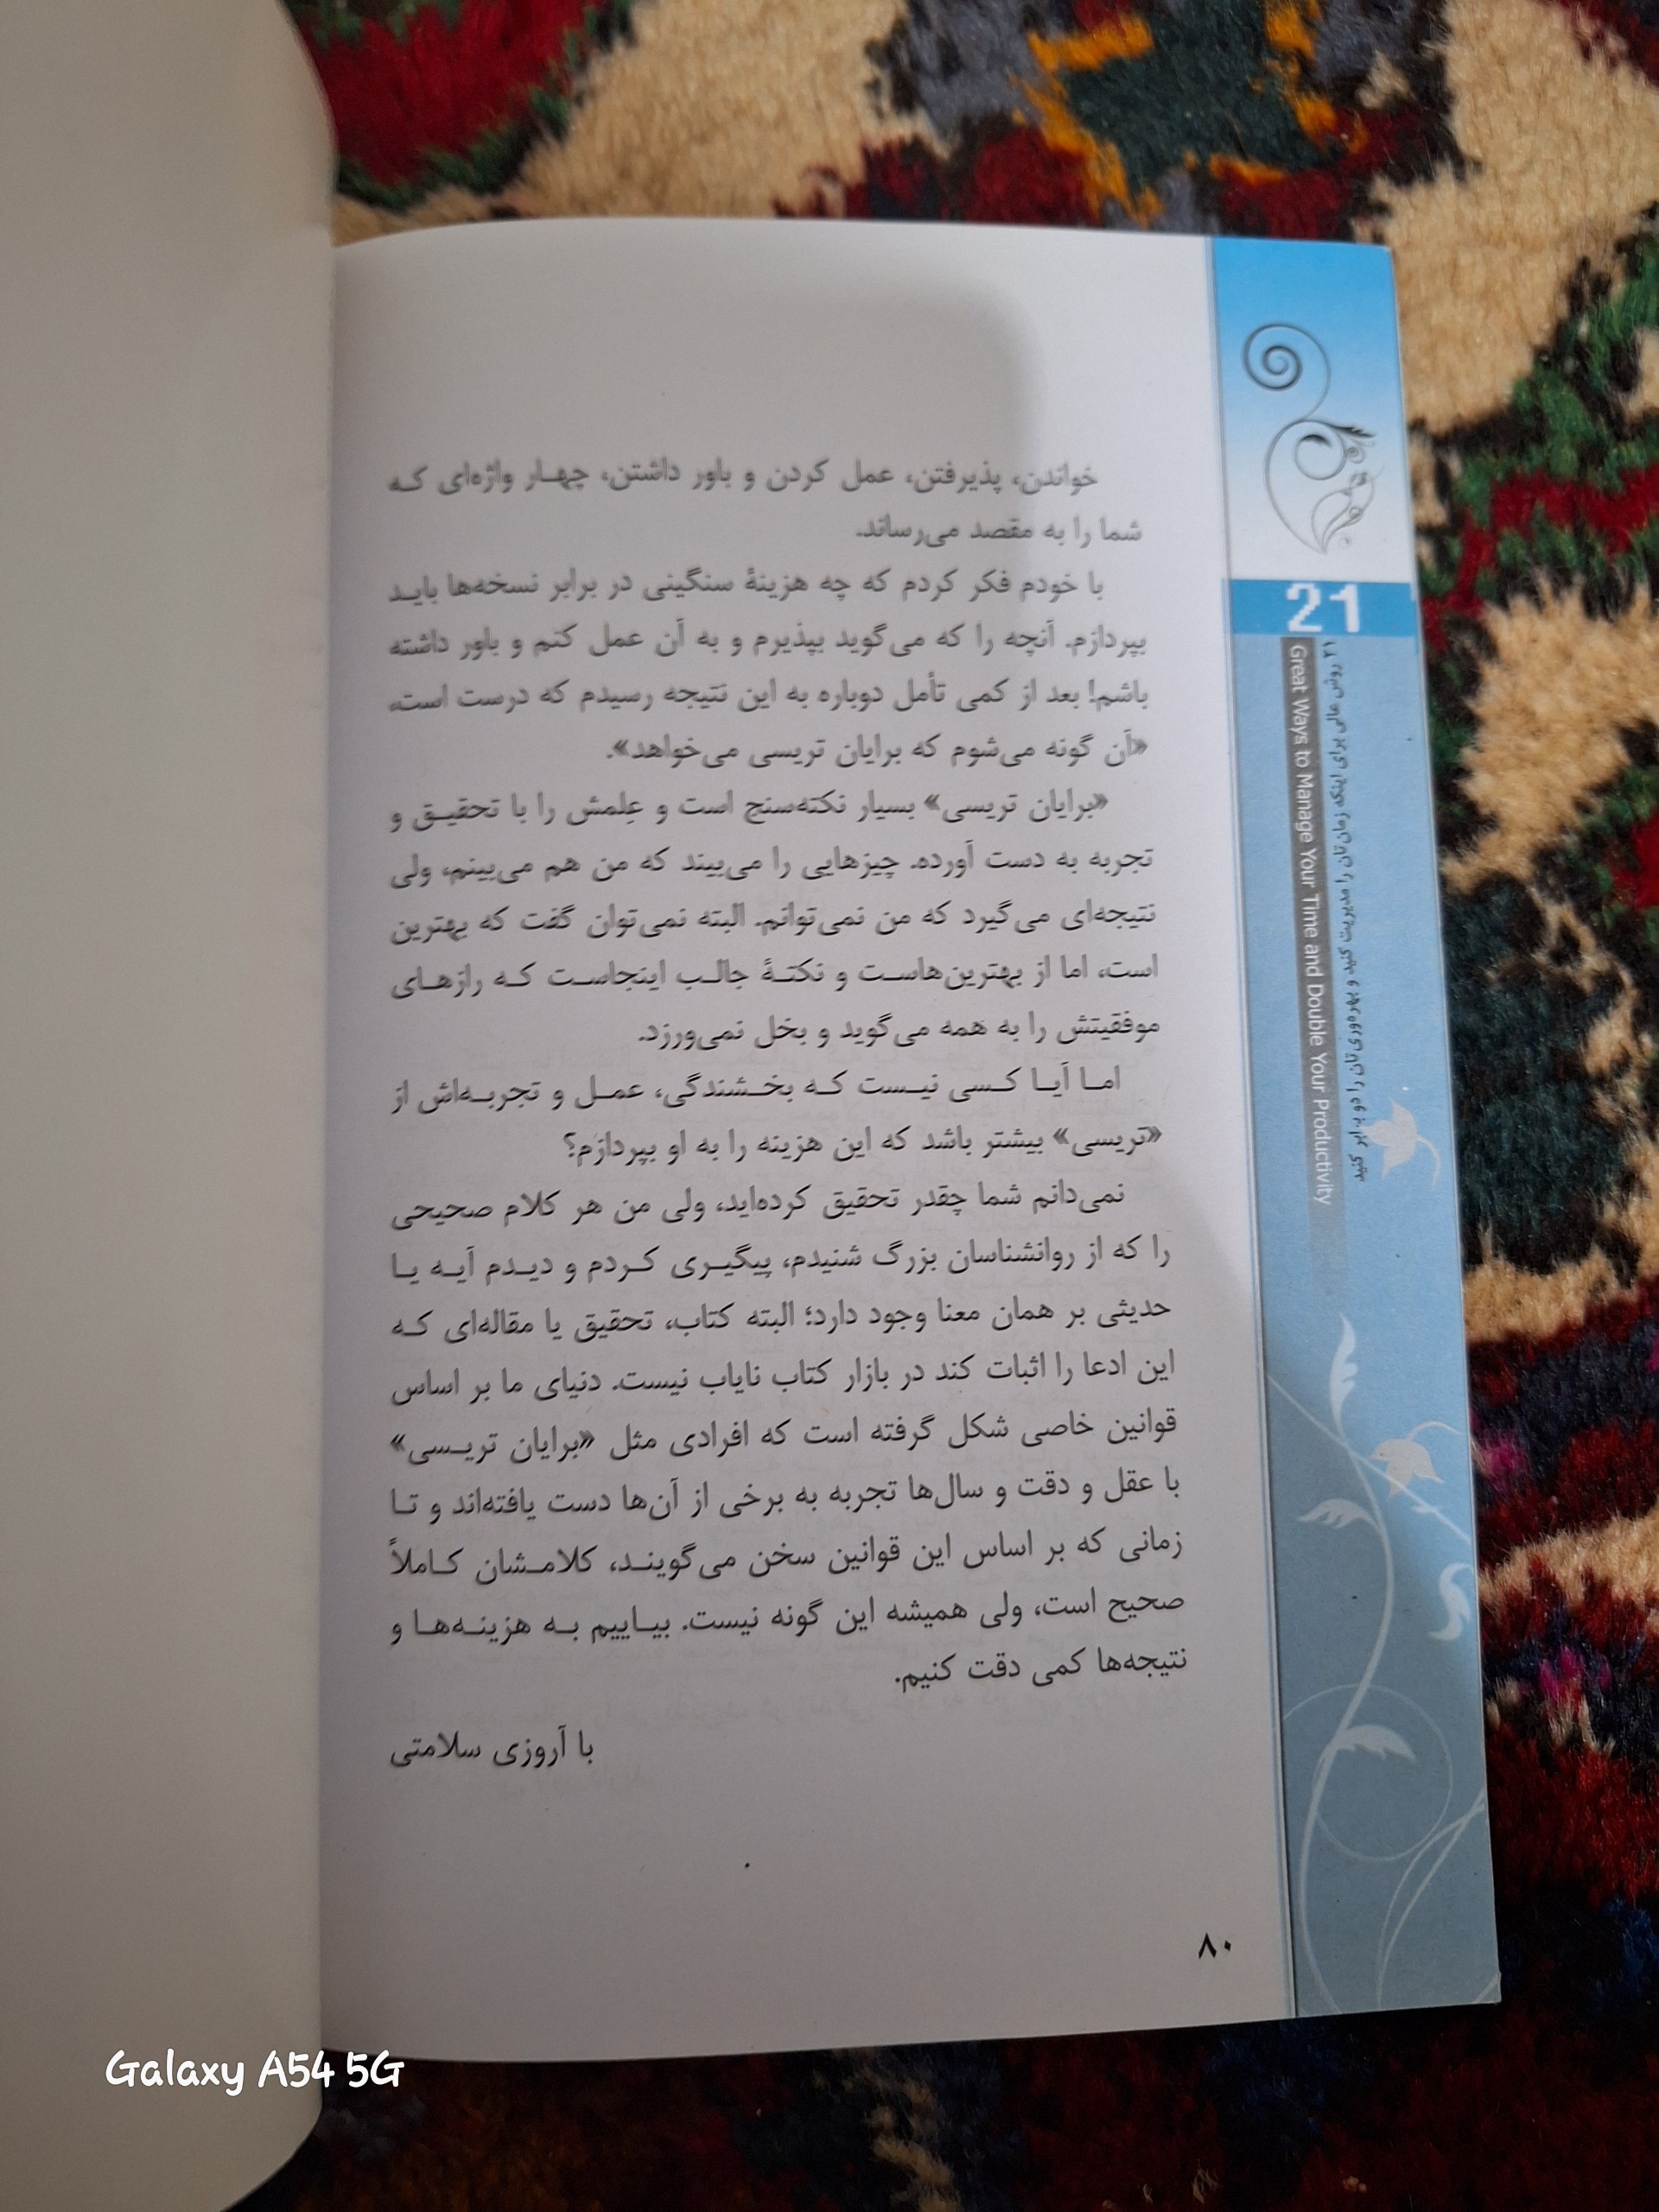 خواندن، پذیرفتن، عمل کردن و باور داشتن، چهـار واژه‌ای کـه
شما را به مقصد می‌رساند.
با خودم فکر کردم که چه هزینهٔ سنگینی در برابر نسخه‌ها بایـد
بپردازم. آنچه را که می‌گوید بپذیرم و به آن عمل کنم و باور داشته
باشم! بعد از کمی تأمل دوباره به این نتیجه رسیدم که درست است،
«آن گونه می‌شوم که برایان تریسی می‌خواهد».
«برایان تریسی» بسیار نکته‌سنج است و عِلمش را با تحقیـق و
تجربه به دست آورده. چیزهایی را می‌بیند که من هم می‌بینم، ولی
نتیجه‌ای می‌گیرد که من نمی‌توانم. البته نمی‌توان گفت که بهترین
است، اما از بهترین‌هاسـت و نکتـهٔ جالـب اینجاسـت کـه رازهـای
موفقیتش را به همه می‌گوید و بخل نمی‌ورزد.
امـا آیـا کـسی نیـست کـه بخـشندگی، عمـل و تجربـه‌اش از
«تریسی» بیشتر باشد که این هزینه را به او بپردازم؟
نمی‌دانم شما چقدر تحقیق کرده‌اید، ولی من هر کلام صحیحی
را که از روانشناسان بزرگ شنیدم، پیگیـری کـردم و دیـدم آیـه یـا
حدیثی بر همان معنا وجود دارد؛ البته کتاب، تحقیق یا مقاله‌ای کـه
این ادعا را اثبات کند در بازار کتاب نایاب نیست. دنیای ما بر اساس
قوانین خاصی شکل گرفته است که افرادی مثل «برایان تریـسی»
با عقل و دقت و سال‌ها تجربه به برخی از آن‌ها دست یافته‌اند و تـا
زمانی که بر اساس این قوانین سخن می‌گوینـد، کلامـشان کـاملاً
صحیح است، ولی همیشه این گونه نیست. بیـاییم بـه هزینـه‌هـا و
نتیجه‌ها کمی دقت کنیم.
با آروزی سلامتی
۸۰
21
Great Ways to Manage Your Time and Double Your Productivity
۲۱ روش عالی برای اینکه زمان‌تان را مدیریت کنید و بهره‌وری‌تان را دو برابر کنید
Galaxy A54 5G